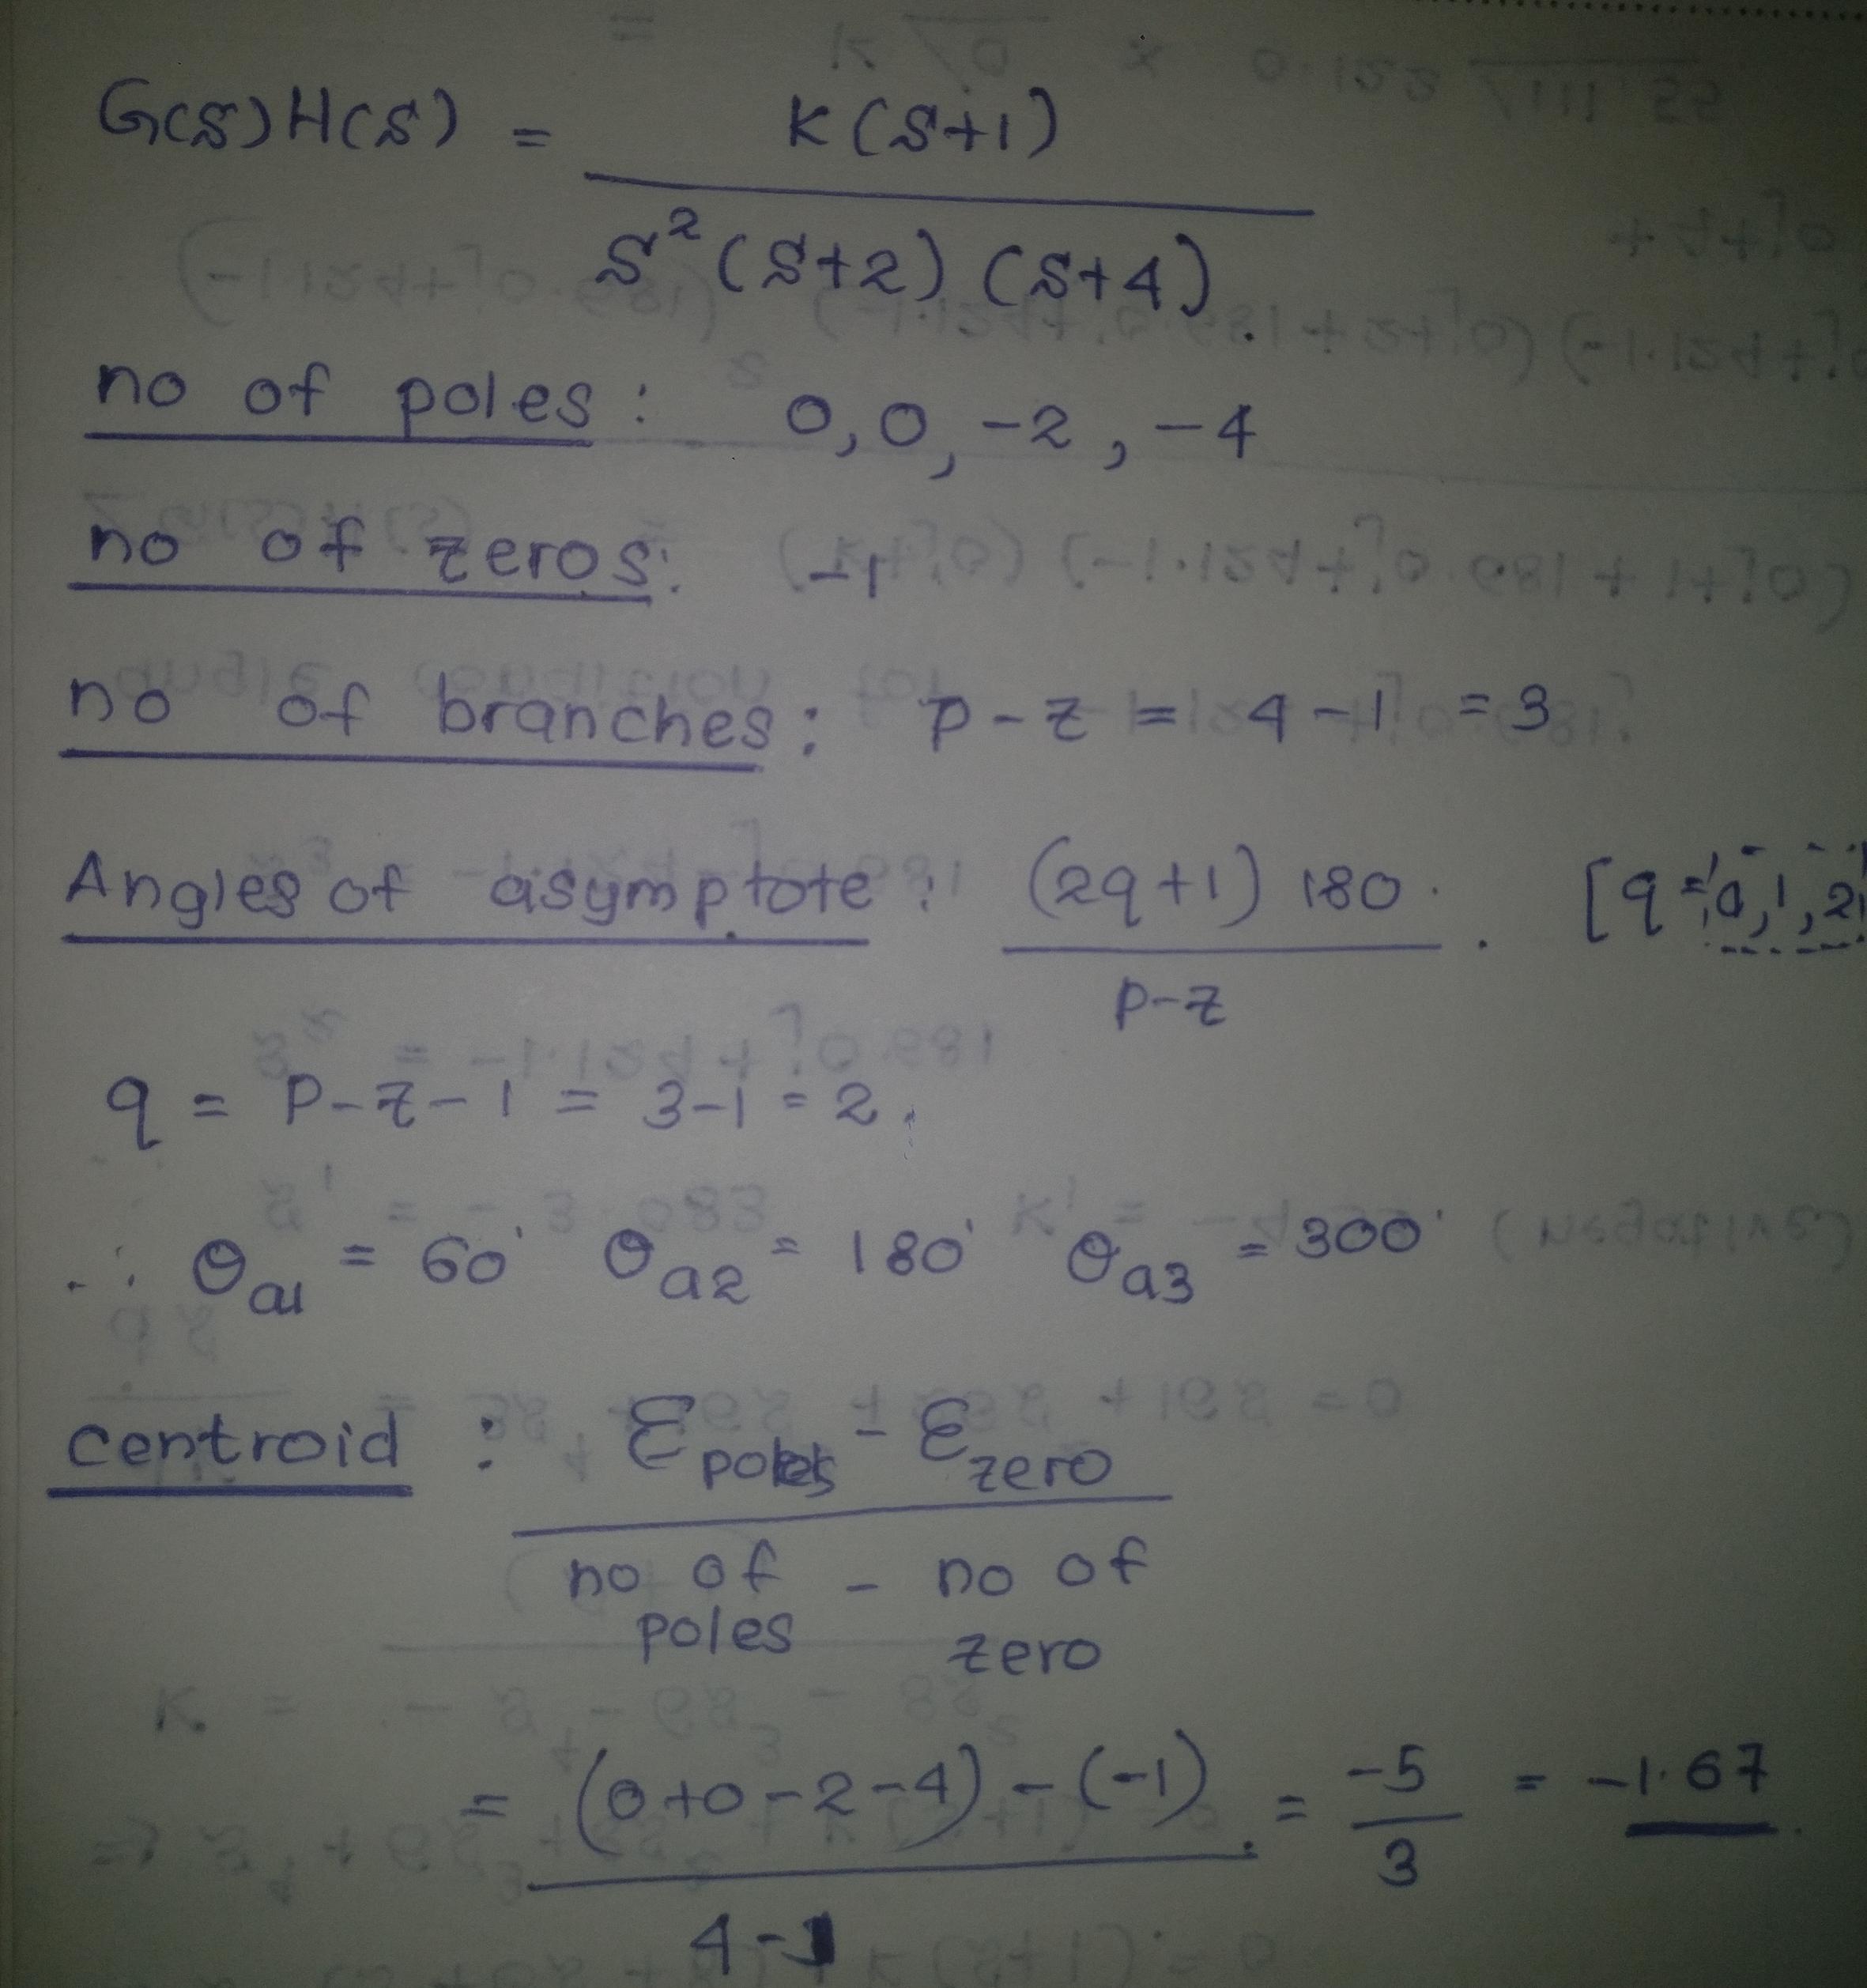 G(S)H(S) = K(S+1)
S²(S+2)(S+4).
no of poles: 0,0,-2,-4
no of zeros: -1
no of branches: P-Z = 4-1 = 3
Angles of asymptote: (2q+1) 180. [q=0,1,2
P-Z
q = P-Z-1 = 3-1 = 2.
∴ θa1 = 60° θa2 = 180° θa3 = 300°
centroid : Ɛpoles - Ɛzero
no of poles - no of zero
= (0+0-2-4)-(-1) = -5/3 = -1.67
4-1